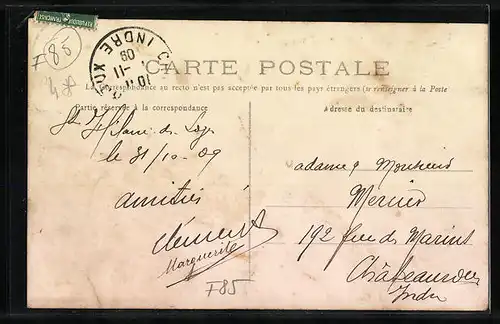 REPUBLIQUE FRANÇAISE
F85
INDRE
09
CARTE POSTALE
La Correspondance au recto n'est pas acceptée par tous les pays étrangers (se renseigner à la Poste
Partie réservée à la correspondance
Adresse du destinataire
St Hilaire de
le 31/10-09
amitiés
Clément
Marguerite
F85
adame & Monsieur
Mercier
192 rue de Marins
Châteauroux
Indre